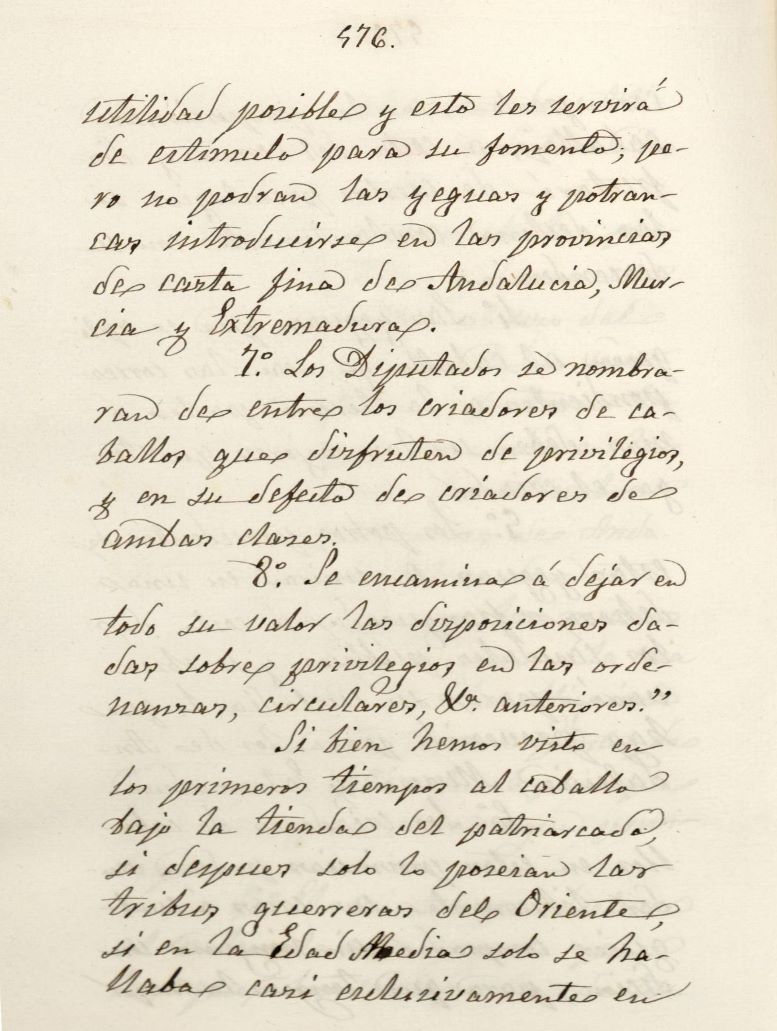 576.
utilidad posible y esto les servirá
de estimulo para su fomento; pe-
ro no podran las yeguas y potran-
cas introducirse en las provincias
de casta fina de Andalucia, Mur-
cia y Extremadura.
7.º Los Diputados se nombra-
ran de entre los criadores de ca-
ballos que disfruten de privilegios,
y en su defecto de criadores de
ambas clases.
8.º Se encamina á dejar en
todo su valor las disposiciones da-
das sobre privilegios en las orde-
nanzas, circulares, &ª. anteriores."
Si bien hemos visto en
los primeros tiempos al caballo
bajo la tienda del patriarcado,
si despues solo lo poseian las
tribus guerreras del Oriente,
si en la Edad Media solo se ha-
llaba casi esclusivamente en